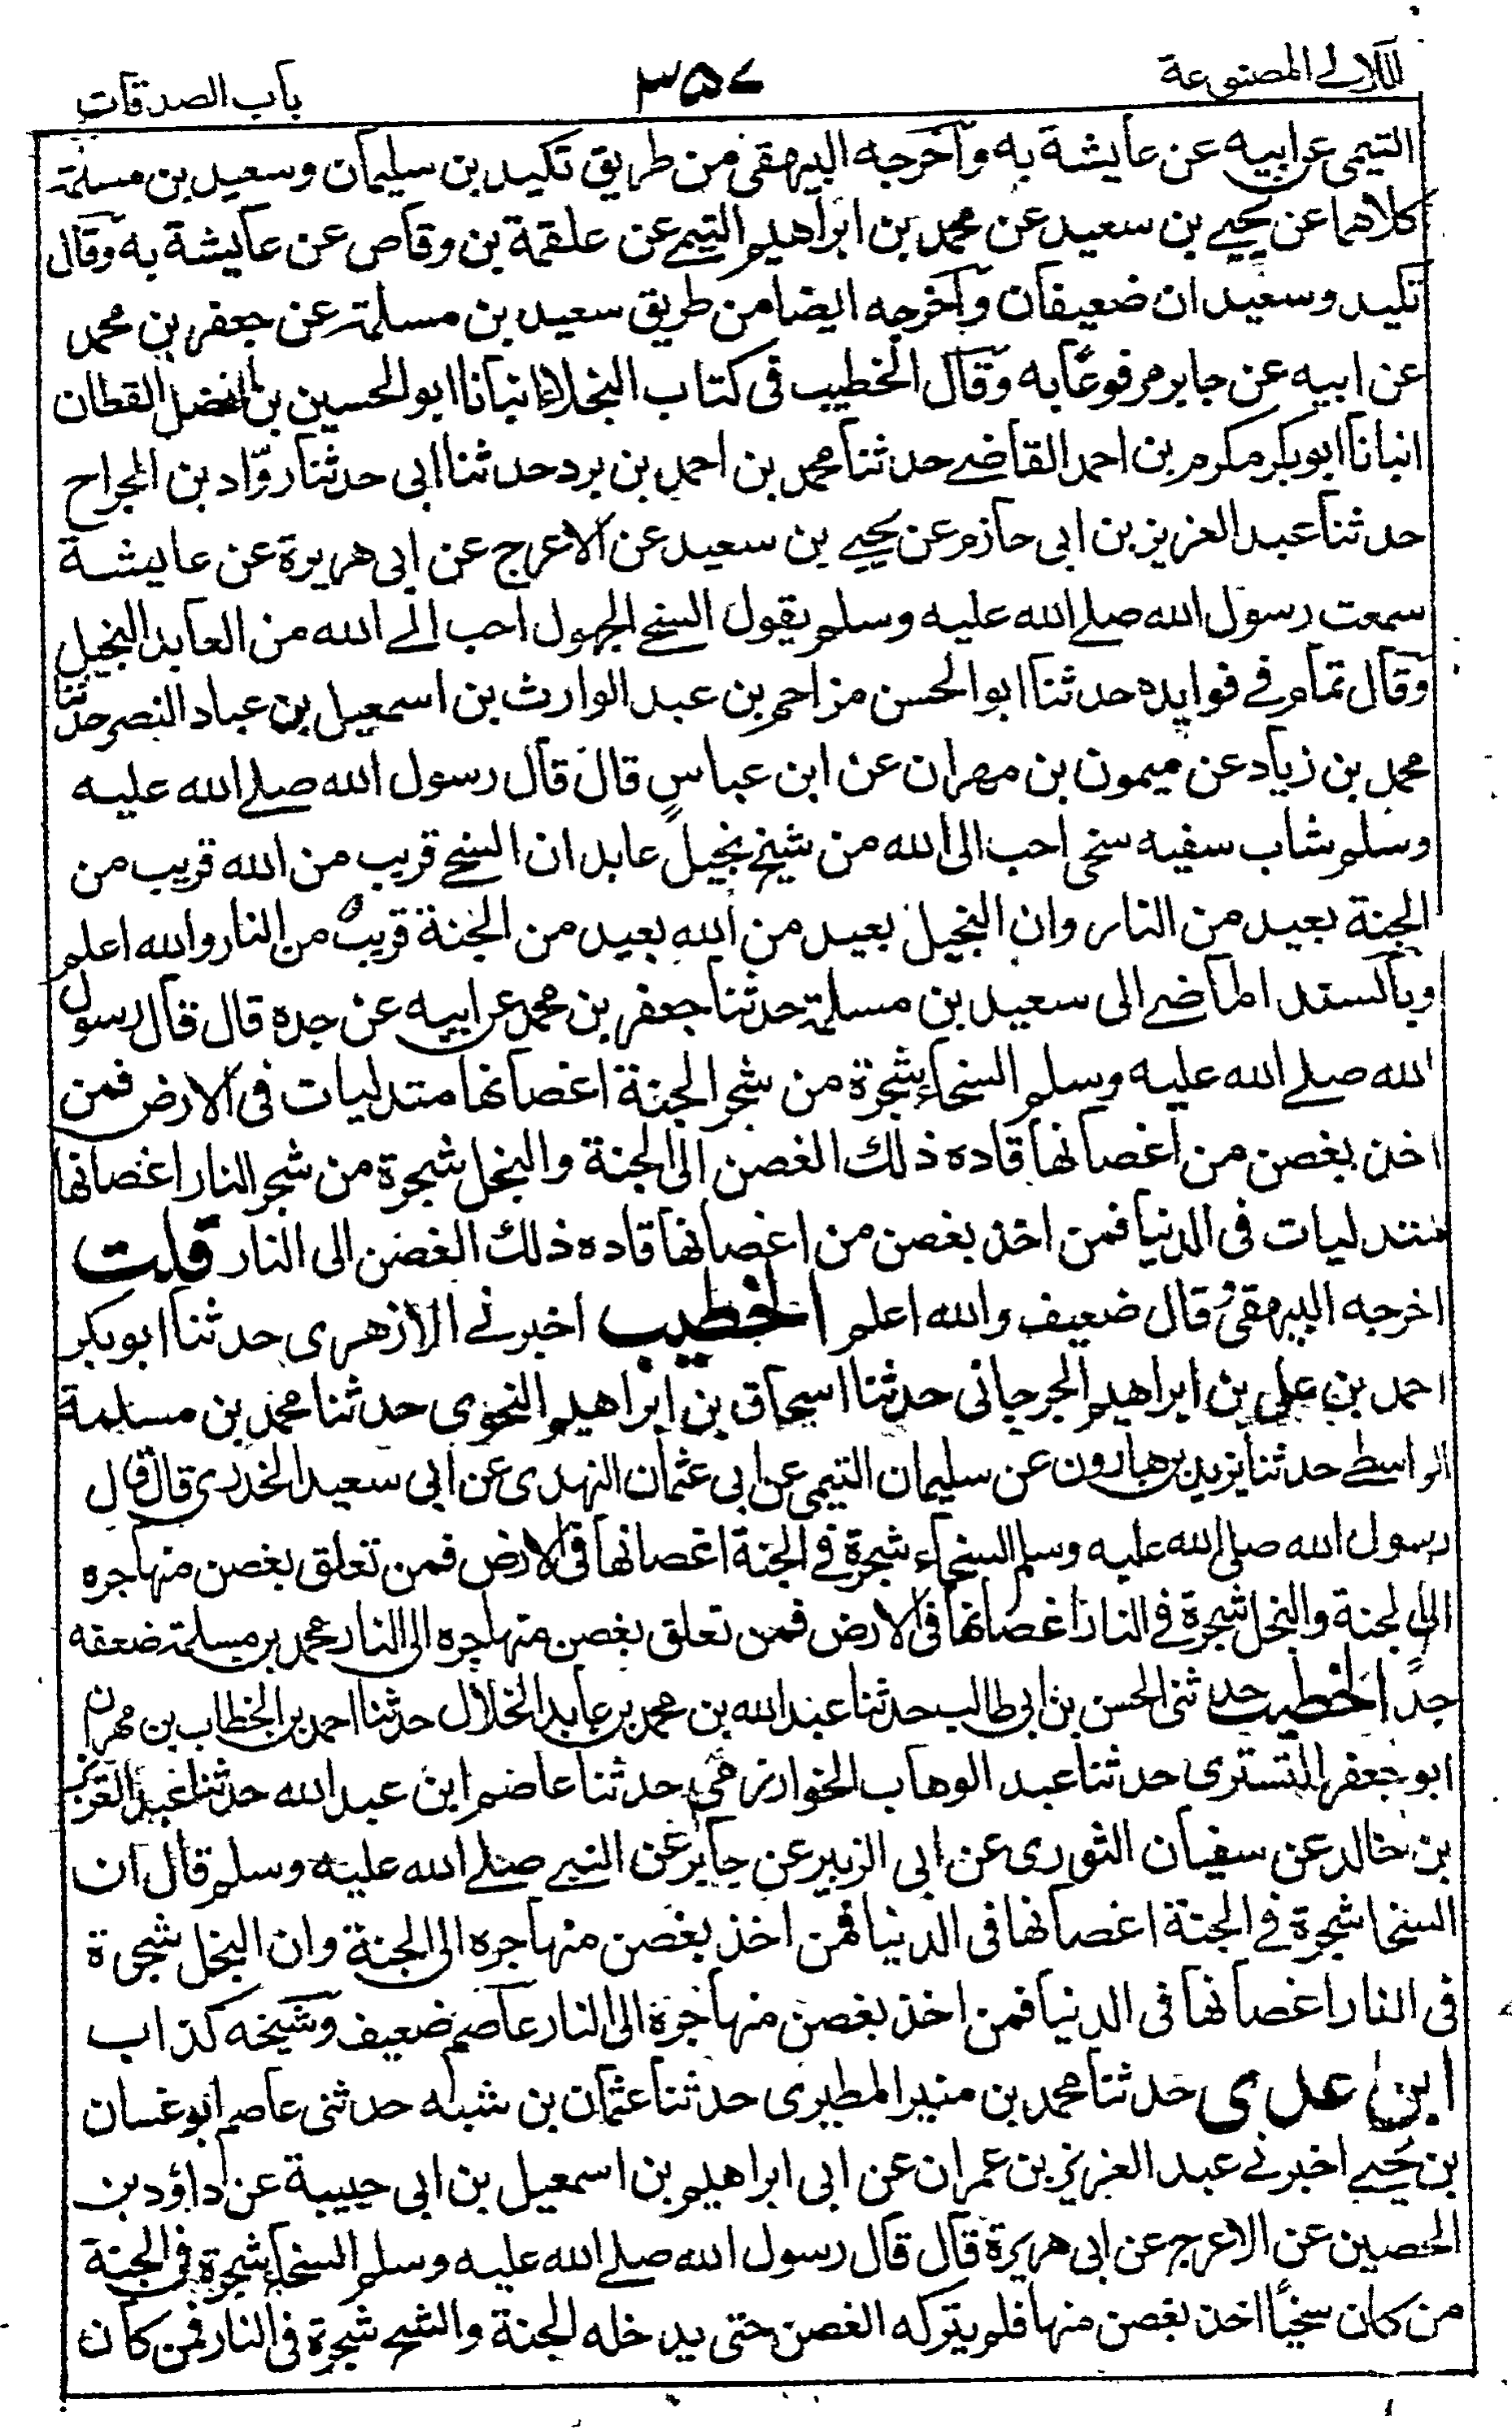 اللآلى المصنوعة
٣٥٧
باب الصدقات
التيمى عن ابيه عن عايشة به وآخرجه البيهقى من طريق تكيد بن سليمان وسعيد بن مسلمة
كلاهما عن يحيے بن سعيد عن محمد بن ابراهيم التيمے عن علقمة بن وقاص عن عايشة به وقال
تكيد وسعيد ان ضعيفان وآخرجه ايضا من طريق سعيد بن مسلمة عن جعفر بن محمد
عن ابيه عن جابر مرفوعًا به وقال الخطيب فى كتاب البخلاء انبانا ابو الحسين بن الفضل القطان
انبانا ابوبكر مكرم بن احمد القاضے حدثنا محمد بن احمد بن برد حدثنا ابى حدثنا روّاد بن الجراح
حدثنا عبد العزيز بن ابى حازم عن يحيے بن سعيد عن الاعرج عن ابى هريرة عن عايشة
سمعت رسول الله صلے الله عليه وسلم يقول السخے الجهول احب الے الله من العابد البخيل
وقال تمام فے فوايده حدثنا ابو الحسن مزاحم بن عبد الوارث بن اسمعيل بن عباد النصر حدثنا
محمد بن زياد عن ميمون بن مهران عن ابن عباس قال قال رسول الله صلے الله عليه
وسلم شاب سفيه سخى احب الى الله من شيخ بخيل عابد ان السخے قريب من الله قريب من
الجنة بعيد من النار وان البخيل بعيد من الله بعيد من الجنة قريب من النار والله اعلم
وبالسند الماضے الى سعيد بن مسلمة حدثنا جعفر بن محمد عن ابيه عن جده قال قال رسول
الله صلے الله عليه وسلم السخاء شجرة من شجر الجنة اغصانها متدليات فى الارض فمن
اخذ بغصن من اغصانها قاده ذلك الغصن الى الجنة والبخل شجرة من شجر النار اغصانها
متدليات فى الدنيا فمن اخذ بغصن من اغصانها قاده ذلك الغصن الى النار قلت
اخرجه البيهقى وقال ضعيف والله اعلم الخطيب اخبرنے الازهرى حدثنا ابوبكر
احمد بن على بن ابراهيم الجرجانى حدثنا اسحاق بن ابراهيم النحوى حدثنا محمد بن مسلمة
الواسطے حدثنا يزيد بن هارون عن سليمان التيمى عن ابى عثمان النهدى عن ابى سعيد الخدرى قال قال
رسول الله صلى الله عليه وسلم السخاء شجرة فے الجنة اغصانها فى الارض فمن تعلق بغصن منها جره
الى الجنة والبخل شجرة فے النار اغصانها فى الارض فمن تعلق بغصن منها جره الى النار محمد بن مسلمة ضعفه
جدًا الخطيب حدثنى الحسن بن ابى طالب حدثنا عبد الله بن محمد بن عابد الخلال حدثنا احمد بن الخطاب بن مهران
ابو جعفر التسترى حدثنا عبد الوهاب الخوارزمى حدثنا عاصم ابن عبد الله حدثنا عبد العزيز
بن خالد عن سفيان الثورى عن ابى الزبير عن جابر عن النبے صلے الله عليه وسلم قال ان
السخا شجرة فے الجنة اغصانها فى الدنيا فمن اخذ بغصن منها جره الى الجنة وان البخل شجرة
فى النار اغصانها فى الدنيا فمن اخذ بغصن منها جره الى النار عاصم ضعيف وشيخه كذاب
ابن عدى حدثنا محمد بن منير المطيرى حدثنا عثمان بن شبه حدثنى عاصم ابو غسان
بن يحيے اخبرنے عبد العزيز بن عمران عن ابى ابراهيم بن اسمعيل بن ابى حبيبة عن داؤد بن
الحصين عن الاعرج عن ابى هريرة قال قال رسول الله صلے الله عليه وسلم السخاء شجرة فى الجنة
من كان سخيًا اخذ بغصن منها فلم يتركه الغصن حتى يدخله الجنة والشح شجرة فى النار فمن كان